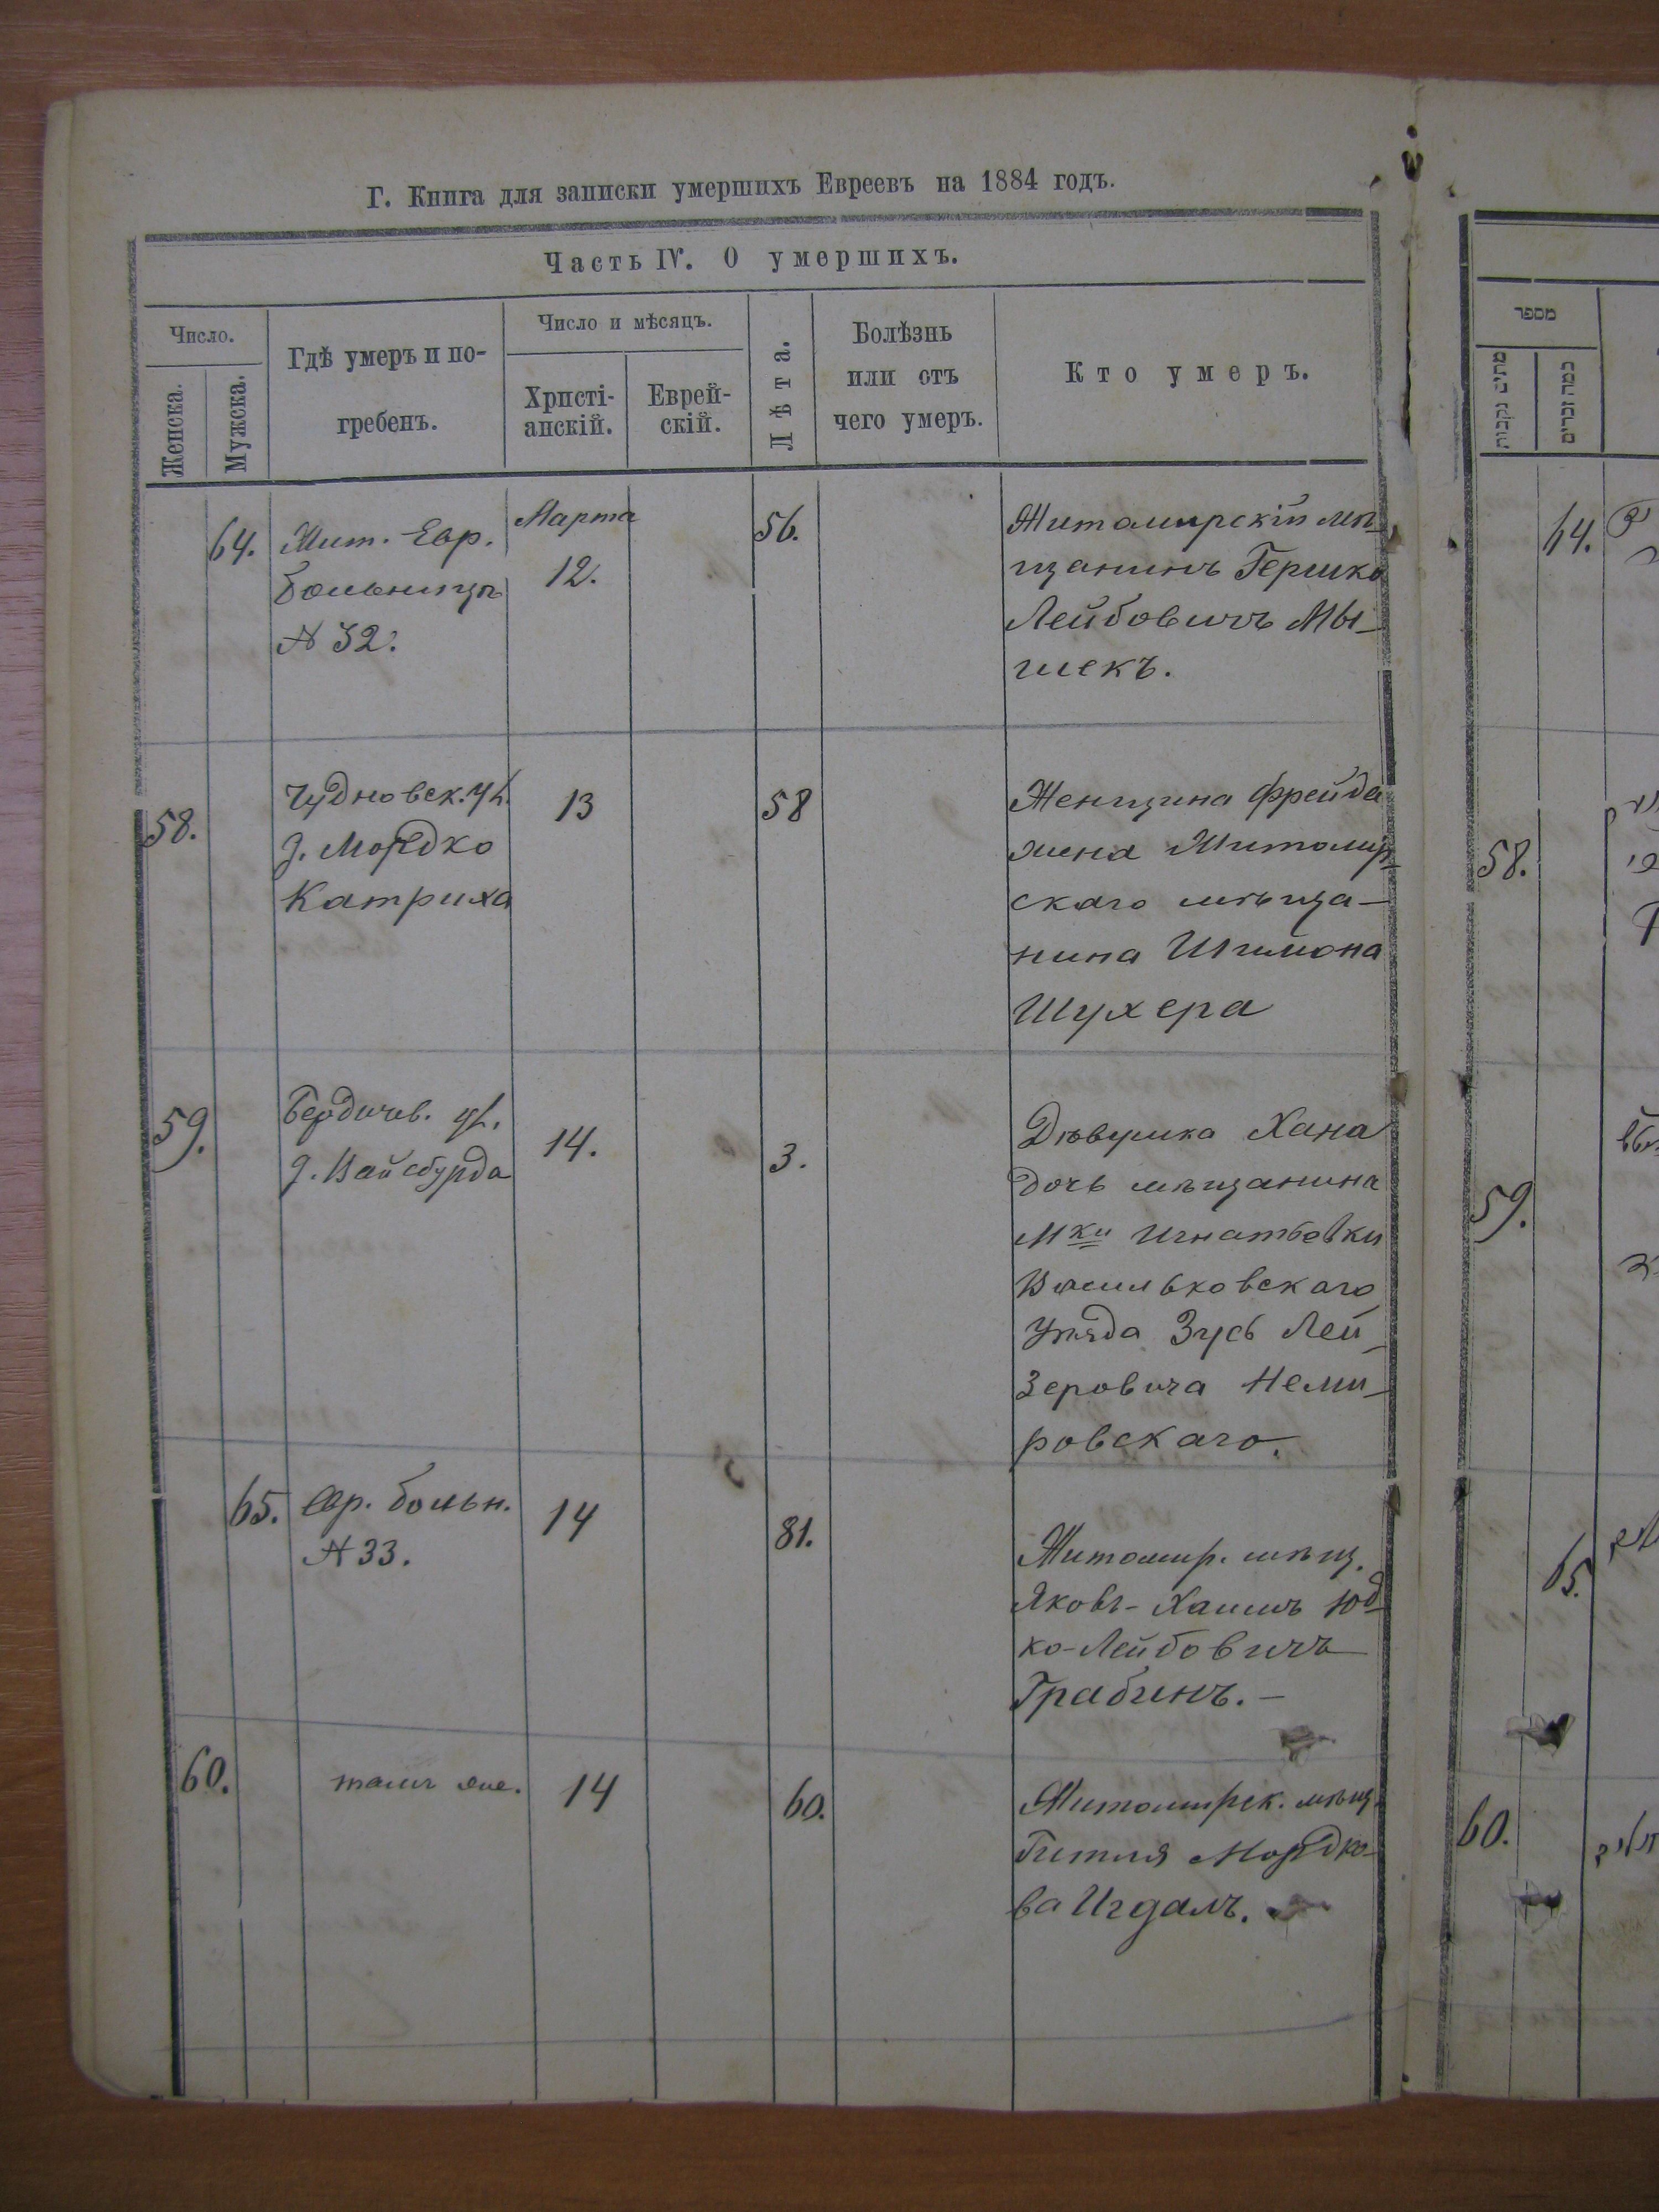 Г. Книга для записки умершихъ Евреевъ на 1884 годъ.
Часть IV. О умершихъ.
Число.
Женска.
Мужска.
Гдѣ умеръ и по-
гребенъ.
Число и мѣсяцъ.
Христі-
анскій.
Еврей-
скій.
Лѣта.
Болѣзнь
или отъ
чего умеръ.
Кто умеръ.
64.
Жит. Евр.
больницы
N 32.
Марта
12.
56.
Житомирскій мѣ-
щанинъ Гершко
Лейбовичъ Мы-
шекъ.
58.
Чудновск. ул.
д. Мордко
Катриха
13
58
Женщина Фрейда
жена Житомир-
скаго мѣща-
нина Шимона
Шухера
59.
Бердичев. ул.
д. Вайсбурда
14.
3.
Дѣвушка Хана
дочь мѣщанина
мки Игнатовки
Васильковскаго
уѣзда Зусь Лей-
зеровича Неми-
ровскаго.
65.
Евр. больн.
N 33.
14
81.
Житомир. мѣщ.
Яковъ-Хаимъ Юд-
ко-Лейбовичъ
Грабинъ. -
60.
тамъ же.
14
60.
Житомирск. мѣщ.
Гитля Мордко-
ва Игдалъ.
מספר
64.
58.
59.
65.
60.